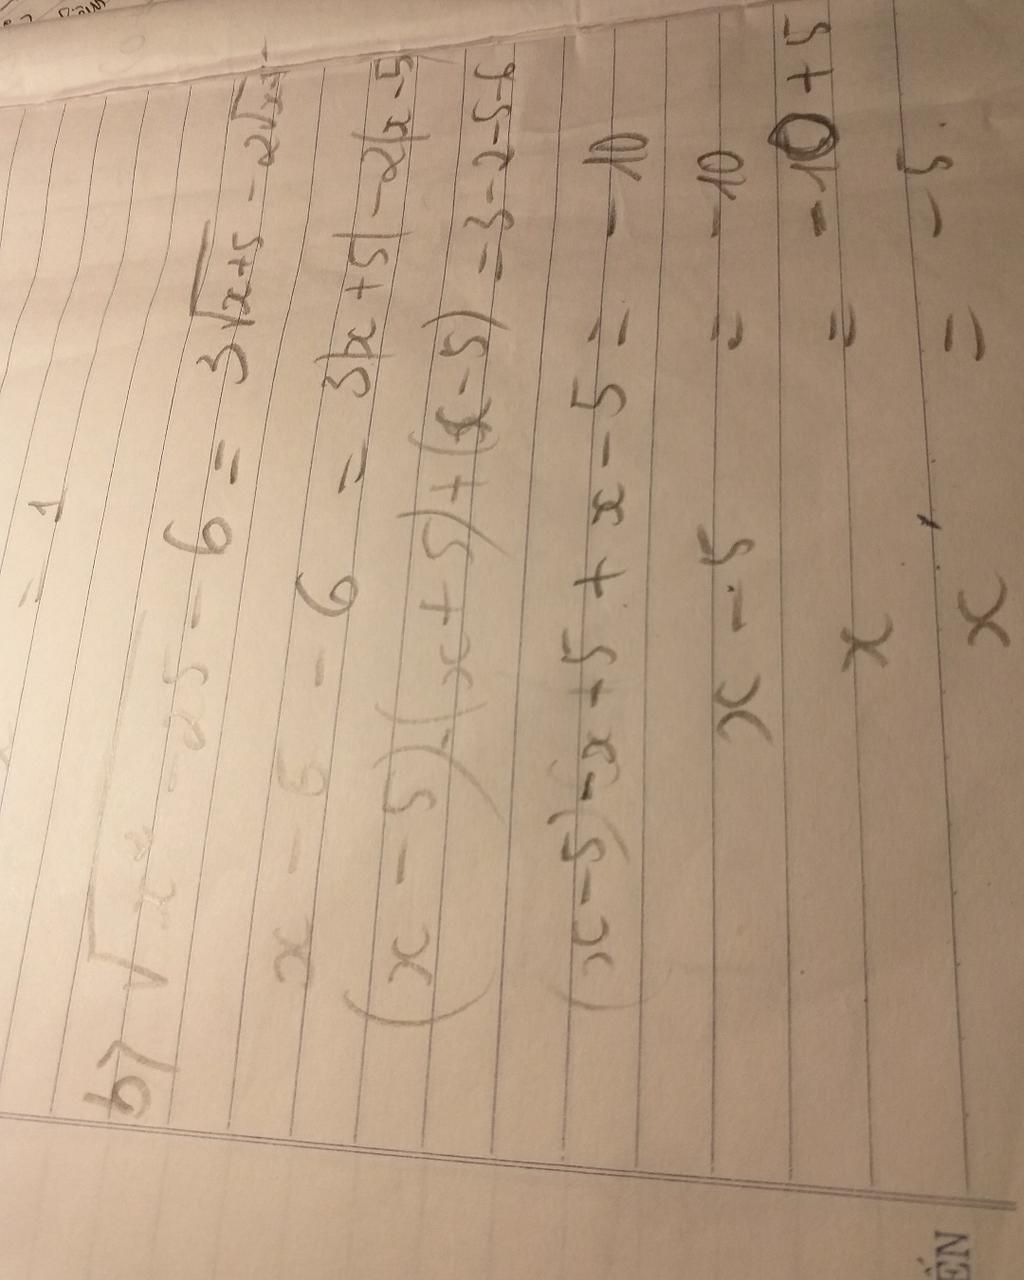 = 1
b) √x² - 25 - 6 = 3√x+5 - 2√x-5
x - 5 - 6 = 3|x+5| - 2|x-5
(x - 5) - (x + 5) + (x - 5) = 3-2-5-6
(x-5) - x + 5 + x - 5 = -10
x - 5 = -10
x = -10 + 5
x = -5.
ẾN